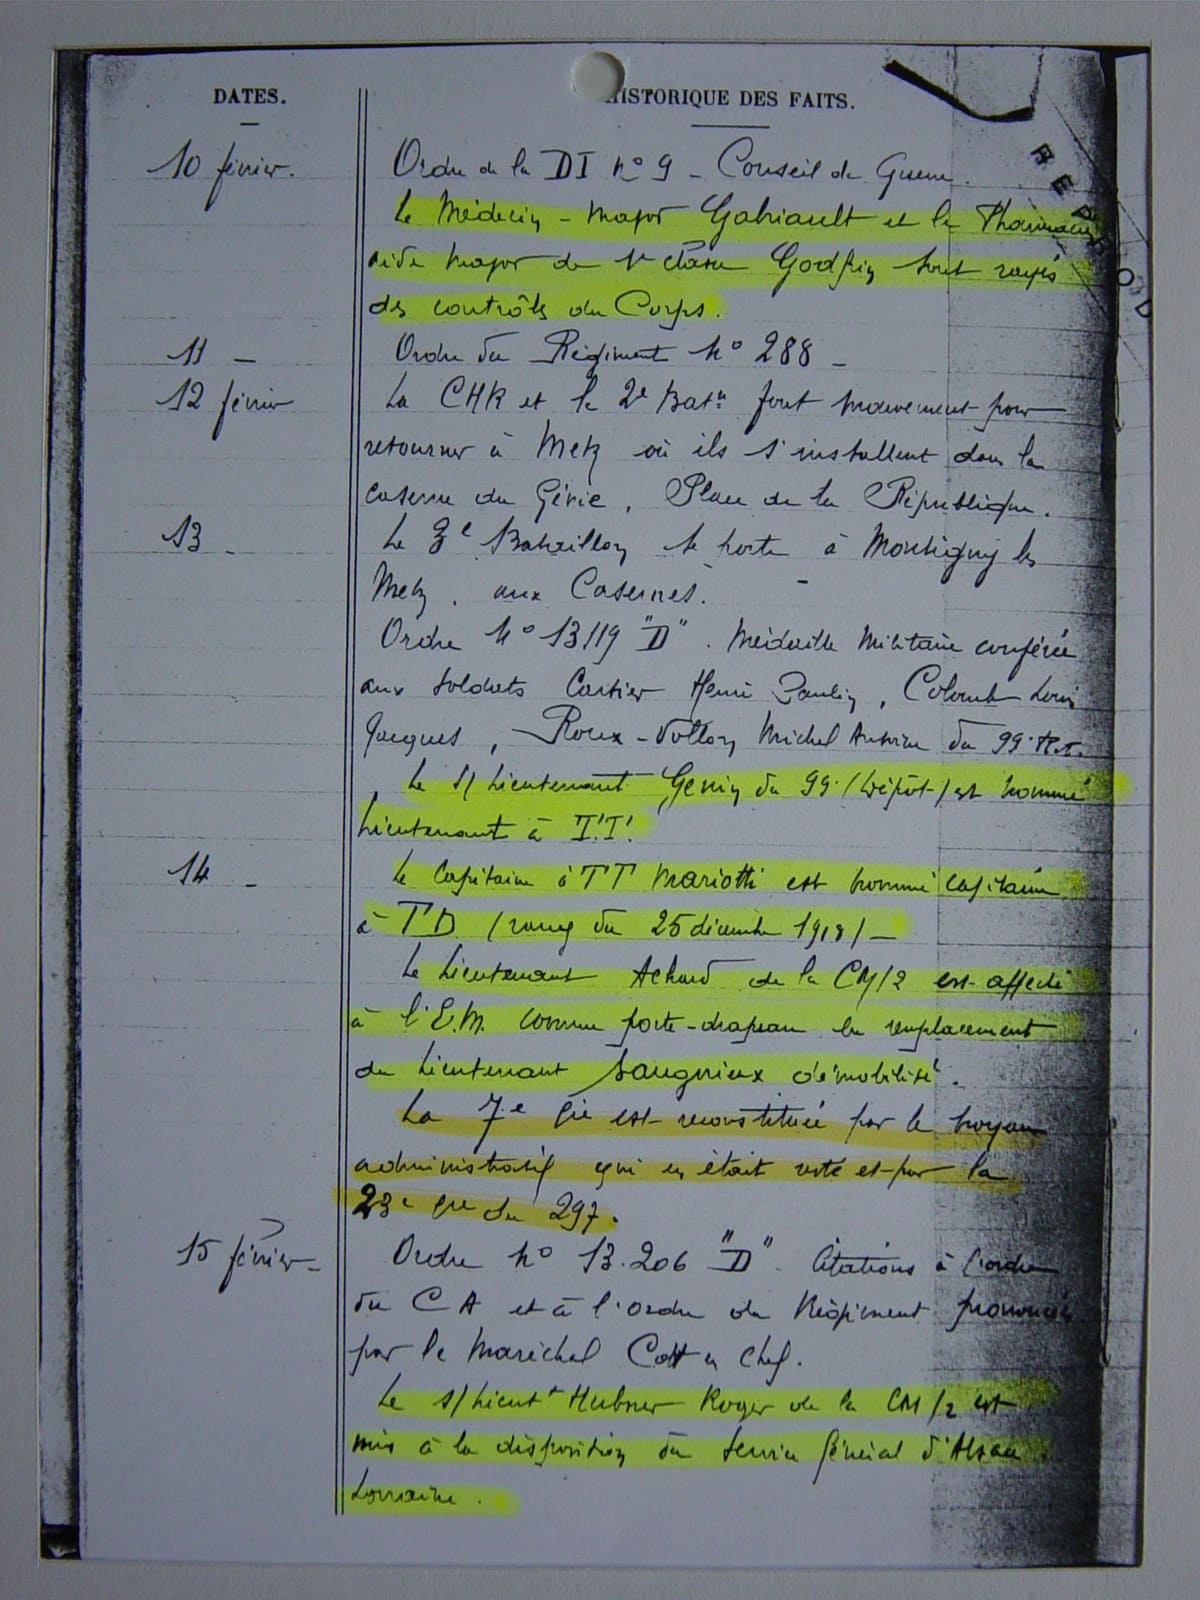 DATES. HISTORIQUE DES FAITS.
REPROD
10 février. Ordre de la DI n° 9 - Conseil de Guerre.
Le Médecin-major Gabriault et le Pharmacien
aide major de 1e classe Godfrin sont rayés
des contrôles du Corps.
11 - Ordre du Régiment N° 288 -
12 février La CHR et le 2e Batn font mouvement pour
retourner à Metz où ils s'installent dans la
caserne du Génie, Place de la République.
13 - Le 3e Bataillon se porte à Montigny les
Metz, aux Casernes.
Ordre N° 13119 "D". Médaille Militaire conférée
aux soldats Cartier Henri Paulin, Colomb Louis
Jacques, Roux-Vollon Michel Antoine du 99e R.I.
Le s/Lieutenant Genin du 99e (Dépôt) est nommé
Lieutenant à T.T.
14 - Le Capitaine à TT Mariotti est nommé capitaine
à TD (rang du 25 décembre 1918) -
Le Lieutenant Achard de la CM/2 est affecté
à l'E.M. comme porte-drapeau en remplacement
du Lieutenant Saugnieux démobilisé.
La 7e Cie est reconstituée par le noyau
administratif qui en était resté et par la
23e Cie du 297.
15 février - Ordre N° 13.206 "D". Citations à l'ordre
du CA et à l'ordre du Régiment prononcées
par le Maréchal Cdt en Chef.
Le s/Lieutt Hubner Roger de la CM/2 est
mis à la disposition du Service Général d'Alsace
Lorraine.